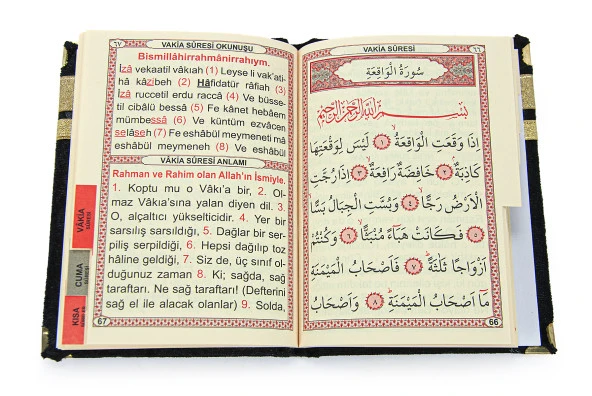 ٦٧
VAKİA SÛRESİ OKUNUŞU
Bismillâhirrahmânirrahıym.
İzâ vekaatil vâkıah (1) Leyse li vak'ati-
hâ kâzibeh (2) Hâfidatür râfiah (3)
İzâ ruccetil erdu raccâ (4) Ve büsse-
til cibâlü bessâ (5) Fe kânet hebâem
mümbessâ (6) Ve küntüm ezvâcen
selâseh (7) Fe eshâbül meymeneti mâ
eshâbül meymeneh (8) Ve eshâbül
VÂKİA SÛRESİ ANLAMI
Rahman ve Rahim olan Allah'ın İsmiyle.
1. Koptu mu o Vâkı'a bir, 2. Ol-
maz Vâkıa'sına yalan diyen dil. 3.
O, alçaltıcı yükselticidir. 4. Yer bir
sarsılış sarsıldığı, 5. Dağlar bir ser-
piliş serpildiği, 6. Hepsi dağılıp toz
hâline geldiği, 7. Siz de, üç sınıf ol-
duğunuz zaman 8. Ki; sağda, sağ
taraftarı. Ne sağ taraftarı! (Defterini
sağ el ile alacak olanlar) 9. Solda,
67
VÂKIA
SÛRESİ
CUMA
SÛRESİ
KISA
VAKİA SÛRESİ
٦٦
سُورَةُ الْوَاقِعَةِ
بِسْمِ اللّٰهِ الرَّحْمٰنِ الرَّحِيمِ
اِذَا وَقَعَتِ الْوَاقِعَةُ ١ لَيْسَ لِوَقْعَتِهَا
كَاذِبَةٌ ٢ خَافِضَةٌ رَافِعَةٌ ٣ اِذَا رُجَّتِ
الْاَرْضُ رَجًّا ٤ وَبُسَّتِ الْجِبَالُ بَسًّا
٥ فَكَانَتْ هَبَٓاءً مُنْبَثًّا ٦ وَكُنْتُمْ
اَزْوَاجًا ثَلٰثَةً ٧ فَاَصْحَابُ الْمَيْمَنَةِ
مَٓا اَصْحَابُ الْمَيْمَنَةِ ٨ وَاَصْحَابُ
66